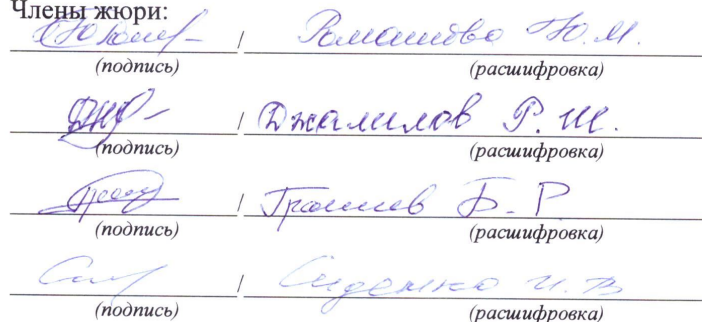 Члены жюри:
/ Ю.М.
(подпись) (расшифровка)
/ Джалилов Р. Ш.
(подпись) (расшифровка)
/ Б. Р
(подпись) (расшифровка)
/ Сиденко И. В
(подпись) (расшифровка)